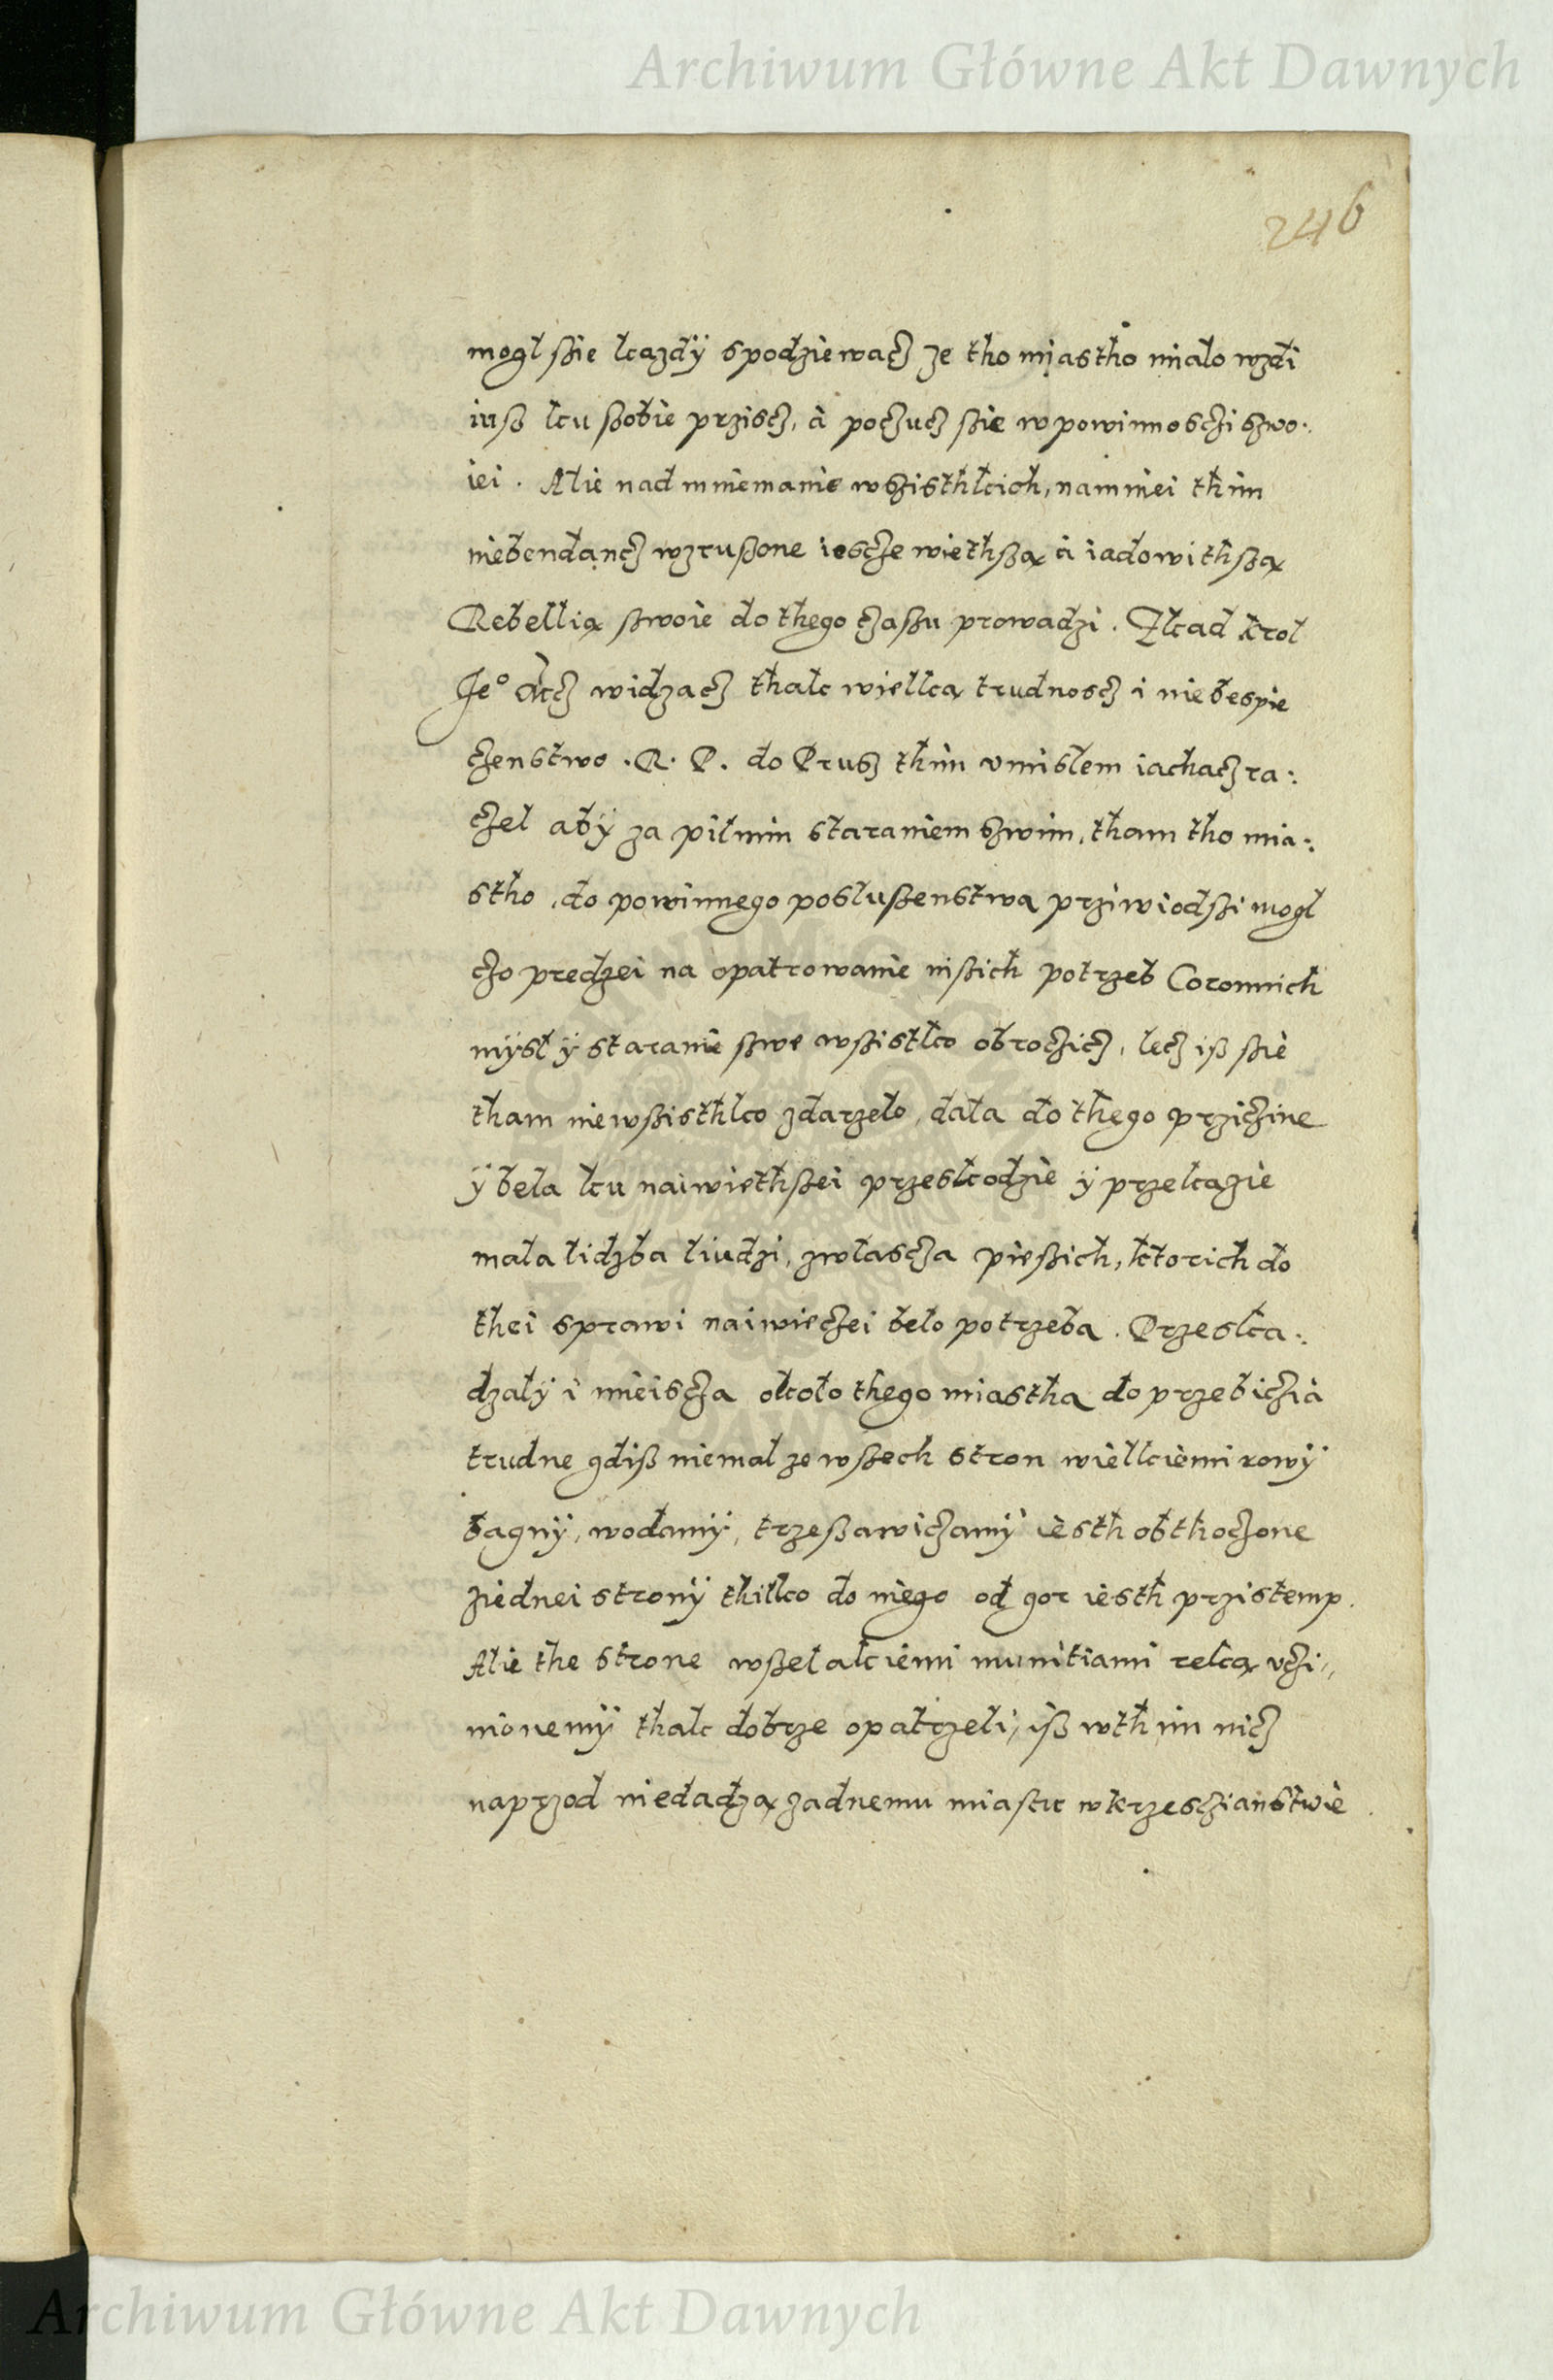 Archiwum Główne Akt Dawnych
246
mogł ssie kazdÿ spodziewacz ze tho miastho miało wzdi
iuß ku ßobie prziscz, à poczucz ssie w powinnosczi szwo:
iei. Alie nad mniemanie wszisthkich, namniei thim
niebendącz wzrußone iescze wiethßą à iadowithßą
Rebellią swoie do thego czaßu prowadzi. Zkad krol
Je° Mcz widzacz thak wielką trudnoscz i niebespie
czenstwo .R.P. do Prusz thim vmisłem iachacz ra:
czeł abÿ za pilnim staraniem szwim, tham tho mia:
stho, do powinnego posłußenstwa prziwiodßi mogł
czo predzei na opatrowanie inßich potrzeb Coronnich
mÿsł ÿ staranie swe wßistko obroczicz, lecz iß ssie
tham niewßisthko zdarzeło, dała do thego prziczine
ÿ beła ku naiwiethßei przeskodzie ÿ przekazie
mała lidzba liudzi, zwłascza pießich, ktorich do
thei sprawi naiwieczei beło potrzeba. Przeska:
dzałÿ i mieiscza około thego miastha do przebiczia
trudne gdiß niemal ze wßech stron wielkiemi rowÿ
bagnÿ, wodamÿ, trzeßawiczamÿ iesth obthoczone
ziednei stronÿ thilko do niego od gor iesth przistemp.
Alie the strone wßelakiemi munitiami reką vczi,,
nionemÿ thak dobrze opatrzeli, iß wthim nicz
naprzod niedadzą zadnemu miastu wkrzesczianstwie
Archiwum Główne Akt Dawnych